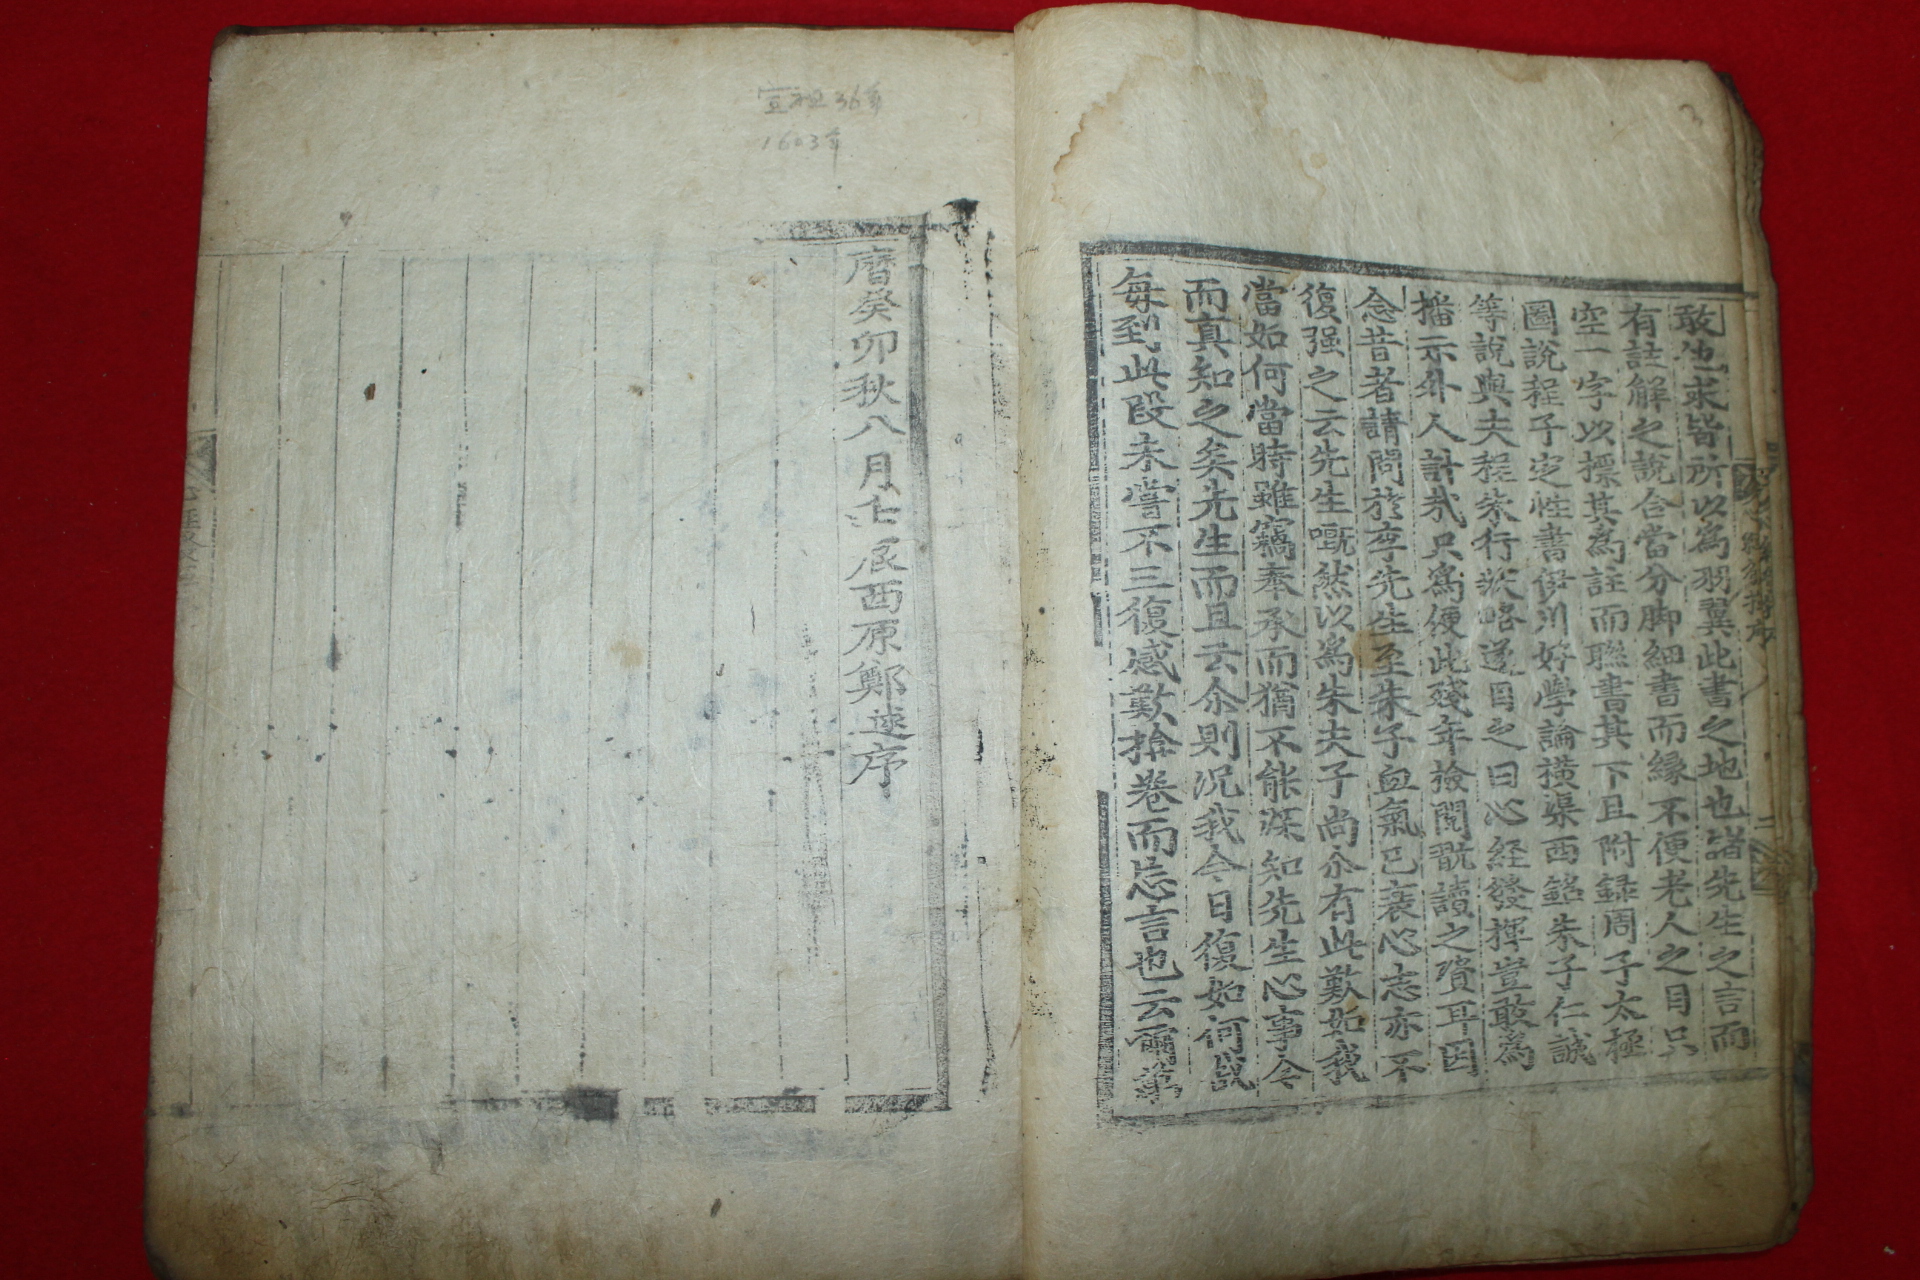 敢他求皆所以為羽翼此書之地也諸先生之言而
有註解之說合當分脚細書而縁不便老人之目只
空一字以標其為註而聯書其下且附録周子太極
圖說程子定性書伊川好學論橫渠西銘朱子仁說
等說與夫程朱行狀略遂目之曰心經發揮豈敢為
播示外人計哉只為便此殘年撿閱翫讀之資耳因
念昔者請問於李先生至朱子血氣已衰心志亦不
復强之云先生嘅然以為朱夫子尚尒有此歎如我
當如何當時雖竊奉承而猶不能深知先生心事今
而真知之矣先生而且云尒則况我今日復如何哉
每到此段未嘗不三復感歎捨卷而忘言也云爾萬
二
曆癸卯秋八月壬辰西原鄭逑序
宣祖36年
1603年